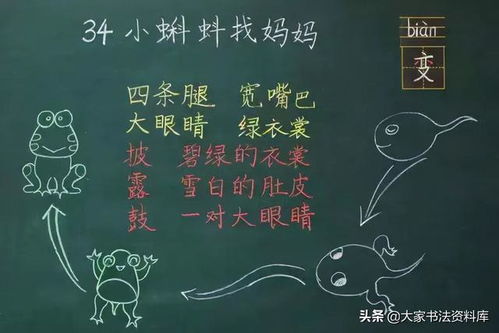 34 小蝌蚪找妈妈
biàn
变
四条腿 宽嘴巴
大眼睛 绿衣裳
披 碧绿的衣裳
露 雪白的肚皮
鼓 一对大眼睛
头条 @大家书法资料库